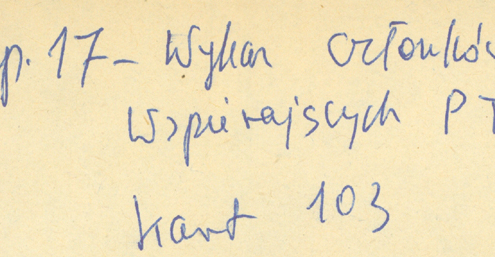 p. 17 - Wykaz członków
Wspierających PT
kart 103